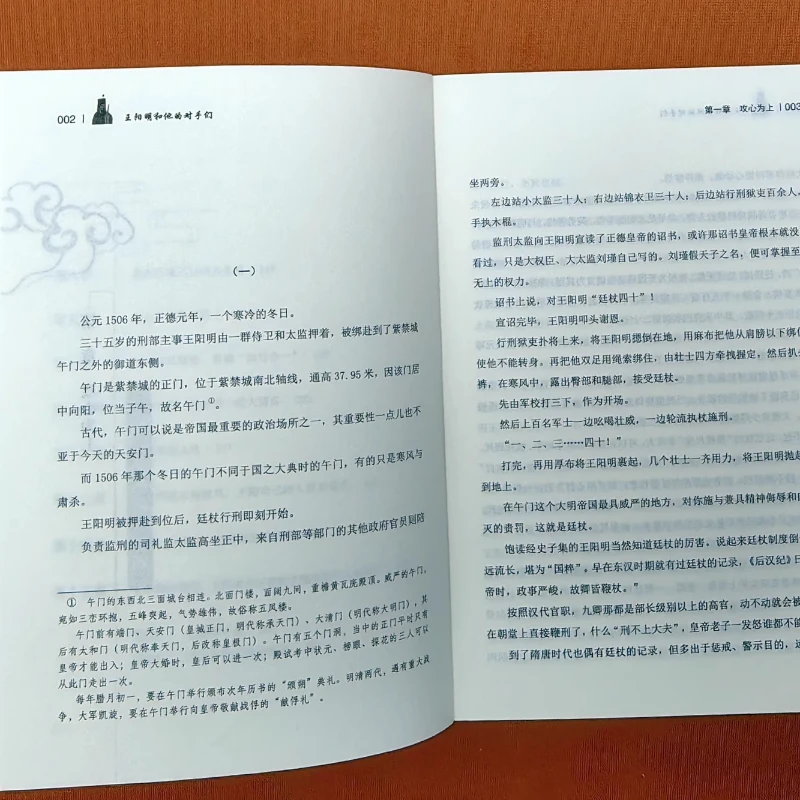 002 | 王阳明和他的对手们
（一）
公元1506年，正德元年，一个寒冷的冬日。
三十五岁的刑部主事王阳明由一群侍卫和太监押着，被绑赴到了紫禁城
午门之外的御道东侧。
午门是紫禁城的正门，位于紫禁城南北轴线，通高37.95米，因该门居
中向阳，位当子午，故名午门①。
古代，午门可以说是帝国最重要的政治场所之一，其重要性一点儿也不
亚于今天的天安门。
而1506年那个冬日的午门不同于国之大典时的午门，有的只是寒风与
肃杀。
王阳明被押赴到位后，廷杖行刑即刻开始。
负责监刑的司礼监太监高坐正中，来自刑部等部门的其他政府官员则陪
① 午门的东西北三面城台相连。北面门楼，面阔九间，重檐黄瓦庑殿顶。威严的午门，
宛如三峦环抱，五峰突起，气势雄伟，故俗称五凤楼。
午门前有端门、天安门（皇城正门，明代称承天门）、大清门（明代称大明门），其
后有太和门（明代称奉天门，后改称皇极门）。午门有五个门洞，当中的正门平时只有
皇帝才能出入；皇帝大婚时，皇后可以进一次；殿试考中状元、榜眼、探花的三人可以
从此门走出一次。
每年腊月初一，要在午门举行颁布次年历书的“颁朔”典礼。明清两代，遇有重大战
争，大军凯旋，要在午门举行向皇帝敬献战俘的“献俘礼”。
第一章 攻心为上 | 003
坐两旁。
左边站小太监三十人；右边站锦衣卫三十人；后边站行刑狱吏百余人，
手执木棍。
监刑太监向王阳明宣读了正德皇帝的诏书，或许那诏书皇帝根本就没
看过，只是大权臣、大太监刘瑾自己写的。刘瑾假天子之名，便可掌握至
无上的权力。
诏书上说，对王阳明“廷杖四十”！
宣诏完毕，王阳明叩头谢恩。
行刑狱吏扑将上来，将王阳明摁倒在地，用麻布把他从肩膀以下绑住
使他不能转身。再把他双足用绳索绑住，由壮士四方牵拽握定，然后扒
裤，在寒风中，露出臀部和腿部，接受廷杖。
先由军校打三下，作为开场。
然后上百名军士一边吆喝壮威，一边轮流执杖施刑。
“一、二、三……四十！”
打完，再用厚布将王阳明裹起，几个壮士一齐用力，将王阳明抛起
到地上。
在午门这个大明帝国最具威严的地方，对你施与兼具精神侮辱和
灭的责罚，这就是廷杖。
饱读经史子集的王阳明当然知道廷杖的厉害，说起来廷杖制度倒
远流长，堪为“国粹”。早在东汉时期就有过廷杖的记录，《后汉纪》
帝时，政事严峻，故卿皆鞭杖。”
按照汉代官职，九卿那都是部长级别以上的高官，动不动就会被
在朝堂上直接鞭刑了，什么“刑不上大夫”，皇帝老子一发怒谁都不能
到了隋唐时代也偶有廷杖的记录，但多出于惩戒、警示目的，远